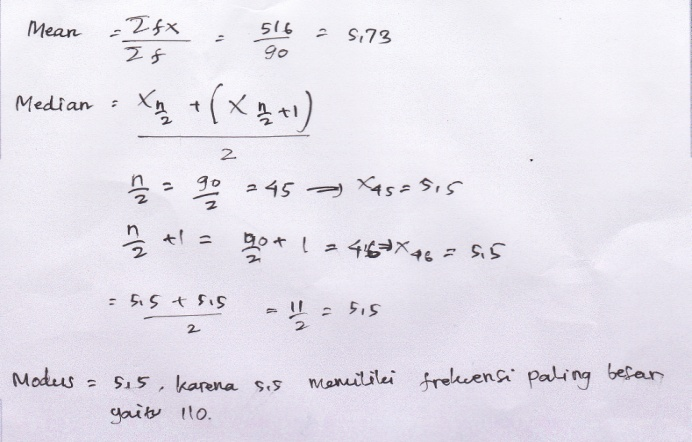 Mean = Σfx / Σf = 516 / 90 = 5,73
Median = X n/2 + (X n/2 +1) / 2
n/2 = 90/2 = 45 → X45 = 5,5
n/2 +1 = 90/2 + 1 = 46 → X46 = 5,5
= 5,5 + 5,5 / 2 = 11/2 = 5,5
Modus = 5,5, karena 5,5 memiliki frekuensi paling besar
yaitu 110.